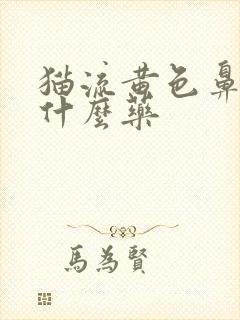 猫流黄色鼻
什麼藥
馬為賢